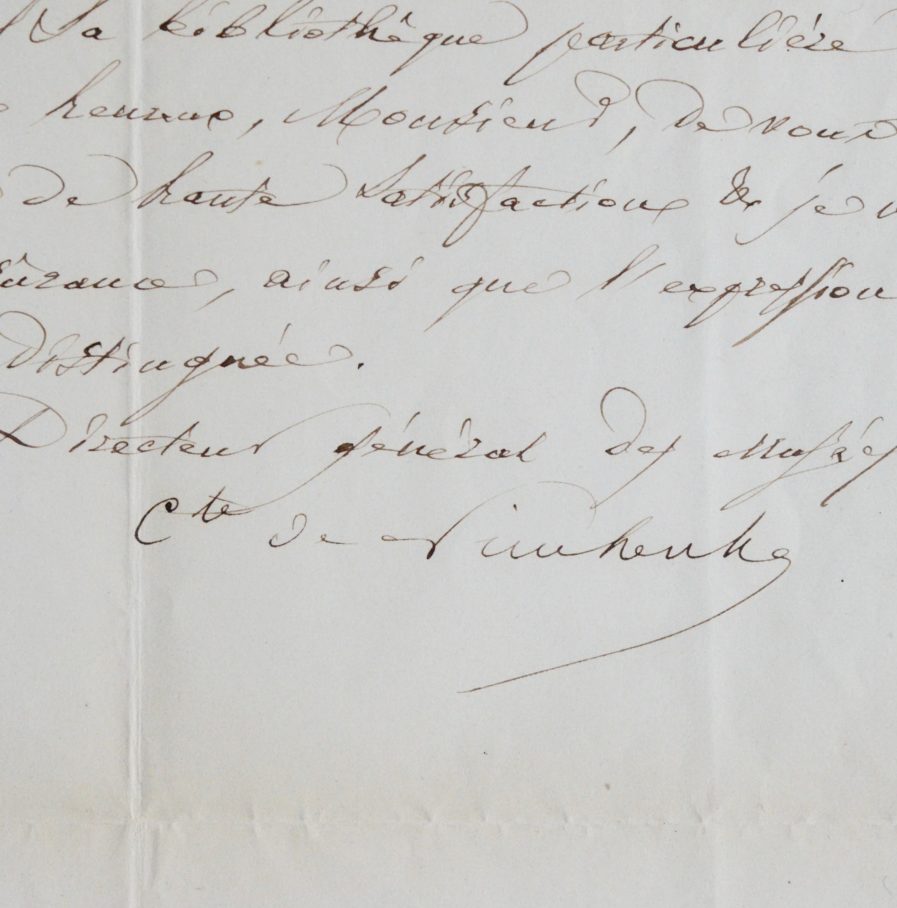 sa bibliothèque particulière
heureux, Monsieur, de vous
de haute satisfaction & je v
surance, ainsi que l'expression
distinguée.
Directeur général des Musées
Cte de Nieuwerkerke